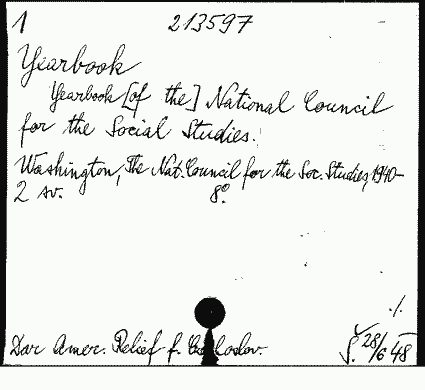 1 213597
Yearbook
Yearbook [of the] National Council
for the Social Studies.
Washington, The Nat. Council for the Soc. Studies, 1940-
2 sv. 8°.
./.
Dar Amer. Relief f.
Š. 28/6 48